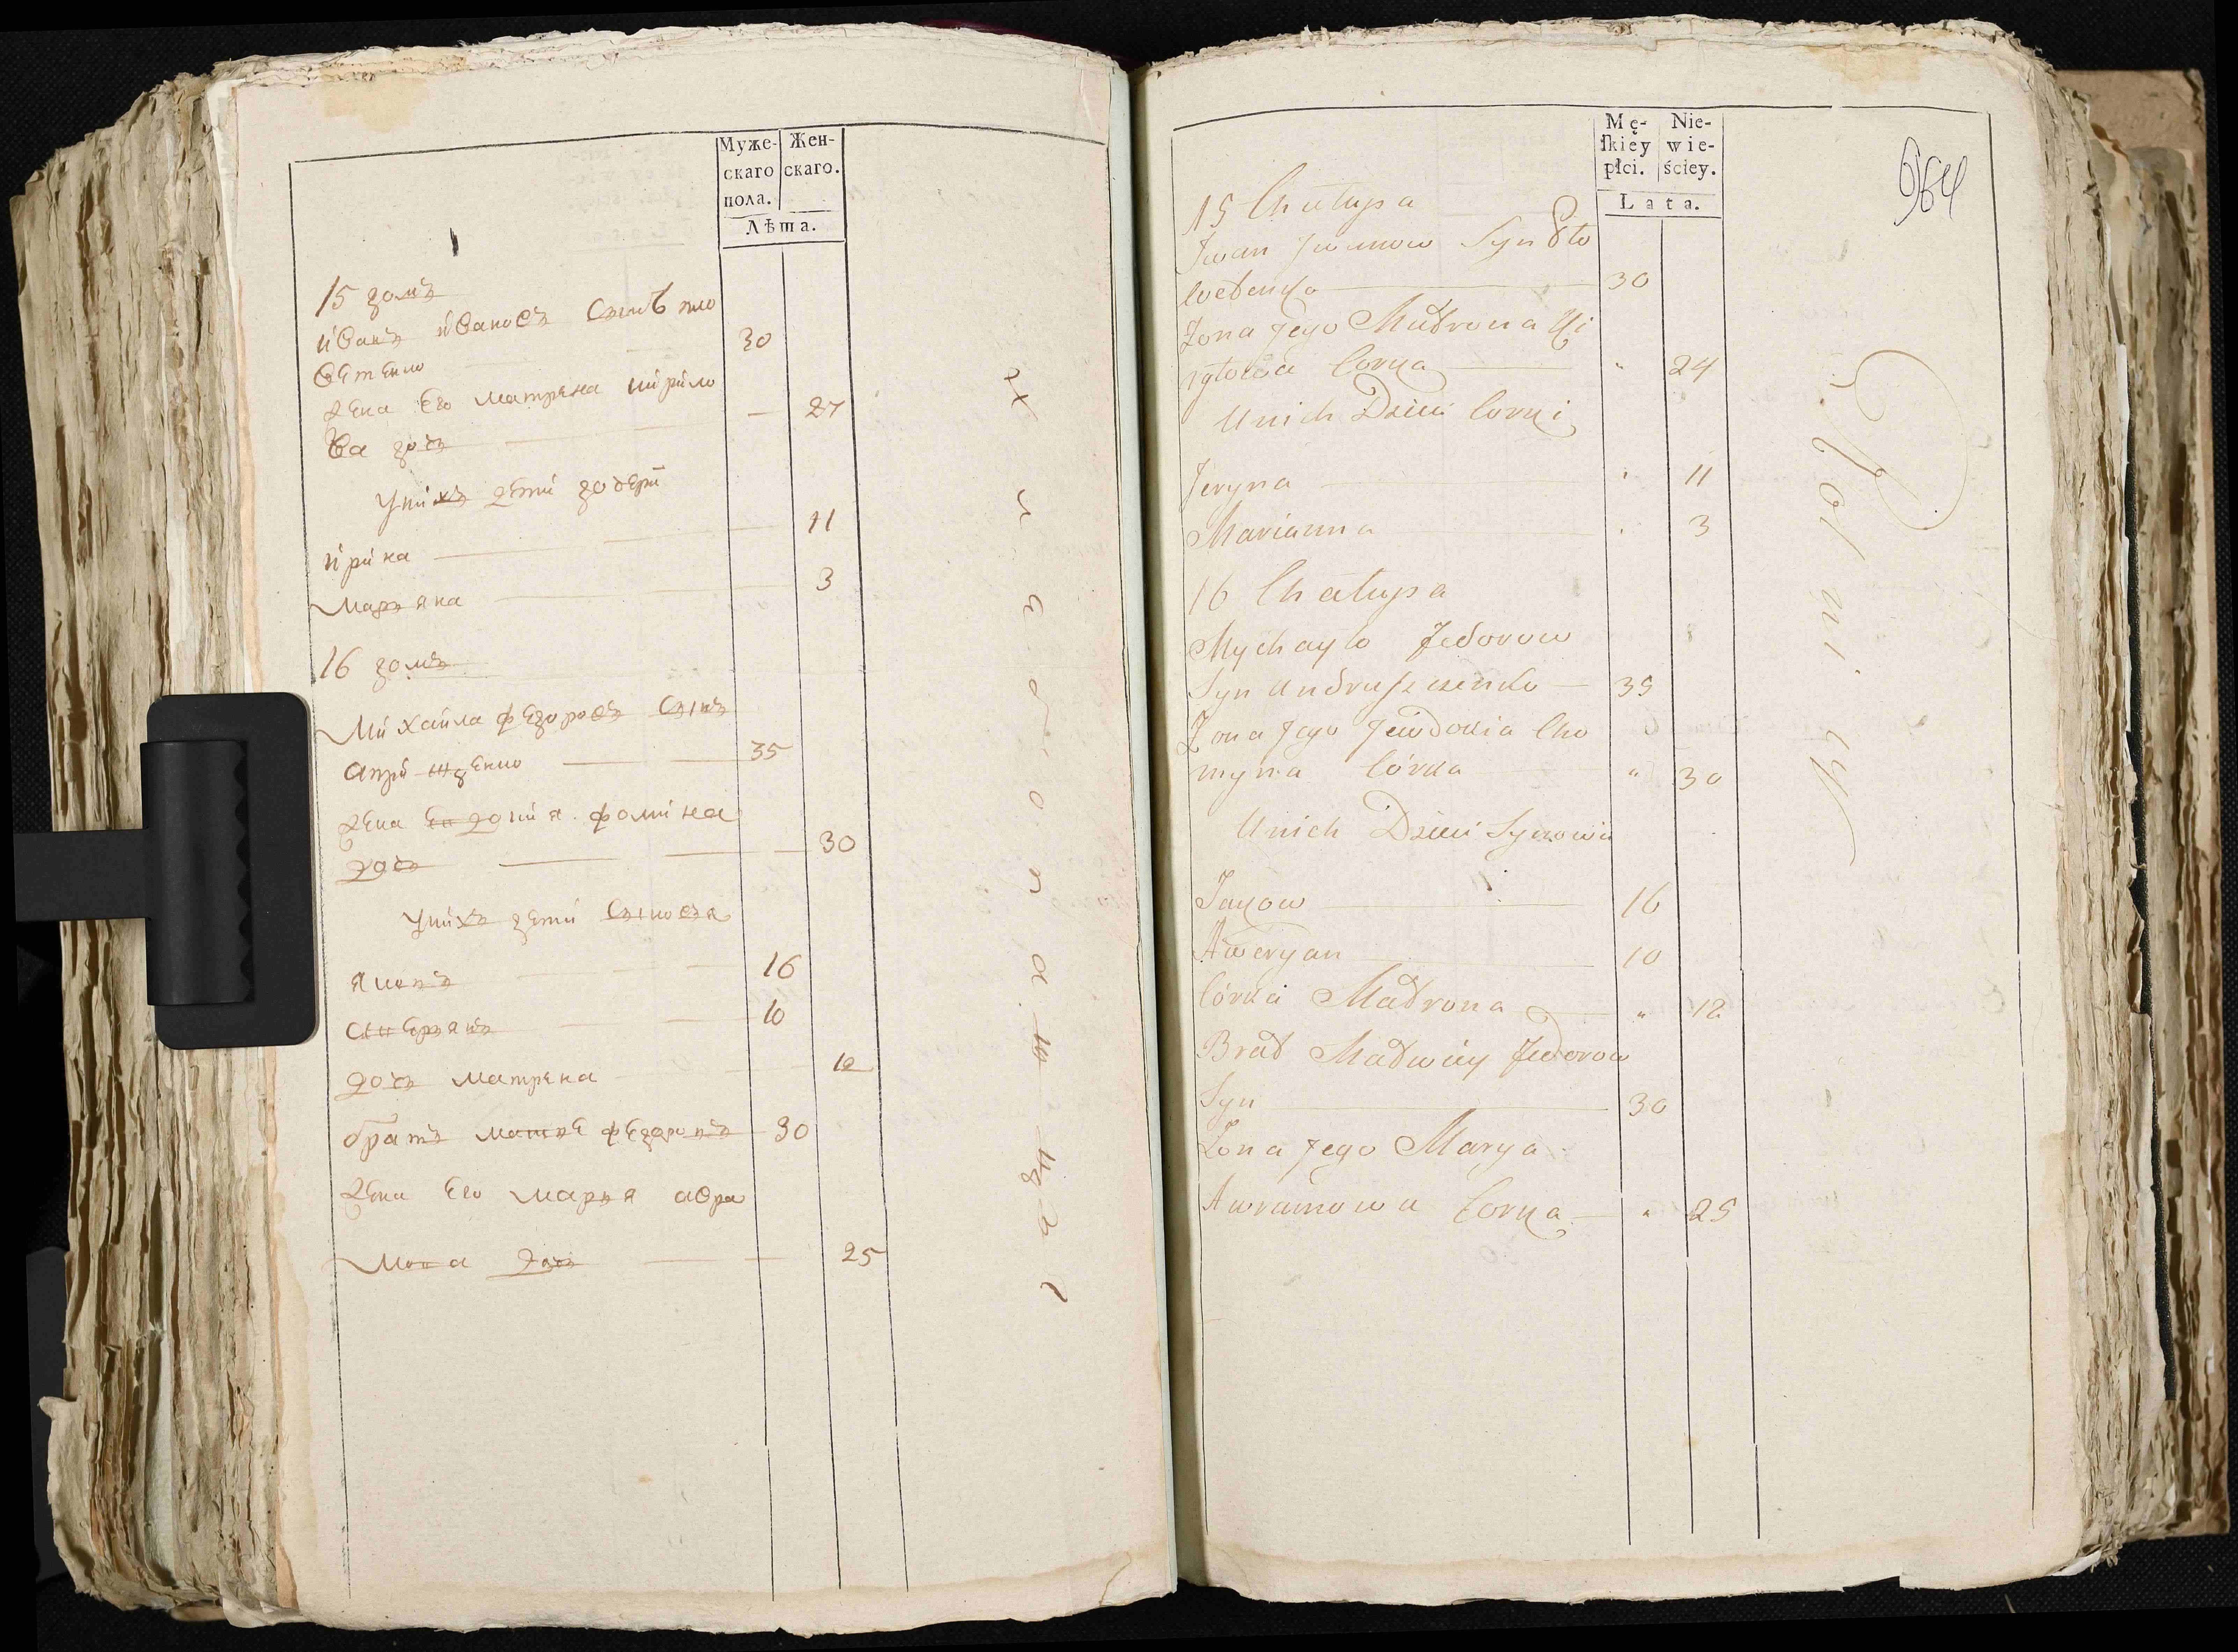 Муже-
скаго
пола.
Жен-
скаго.
Лѣта.
15 домъ
иванъ ивановъ сынъ
30
жена его матрена кирило
ва доч
— 27
у них дети дочери
ирина — 11
марьяна — 3
16 домъ
михаила федоровъ сынъ
35
жена евдокия фомина
доч — 30
у них дети сыновя
якопъ — 16
аверянъ — 10
доч матрена — 12
братъ матве федоровъ — 30
жена его марья авра
мова доч — 25
хлебопашцы
Mę-
ſkiey
płci.
Nie-
wie-
ściey.
Lata.
964
15 Chałupa
Jwan Jwanow Syn
30
Zona Jego Matrona Ki
ryłowa Corka — " 24
U nich Dzieci Corki
Jeryna — " 11
Marianna — " 3
16 Chałupa
Mychayło Fedorow
Syn Andruszczenko — 35
Zona Jego Jewdokia Cho
myna Córka " 30
U nich Dzieci Synowie
Jakow — 16
Aweryan — 10
Córka Matrona — " 12
Brat Matwiey Fedorow
Syn — 30
Zona Jego Marya
Awramowa Corka — " 25
Rolnik